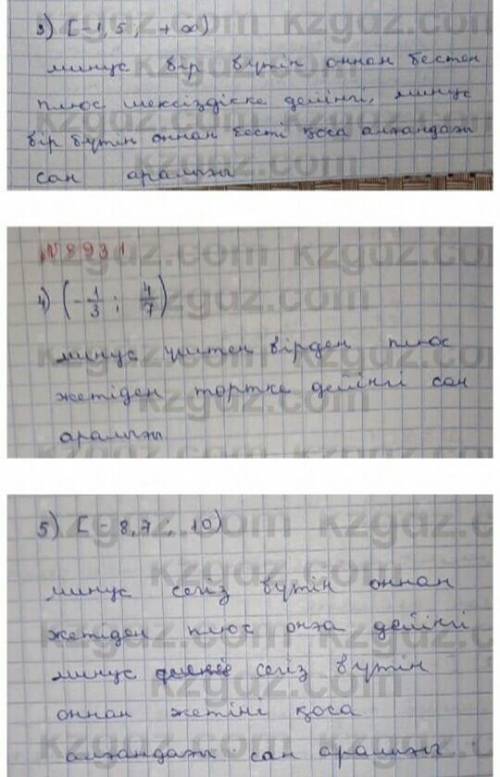 3) [-1,5; +∞)
минус бір бүтін оннан бестен
плюс шексіздікке дейінгі, минус
бір бүтін оннан бесті қоса алғандағы
сан аралығы
№8931
4) (-1/3; 4/7)
минус үштен бірден плюс
жетіден төртке дейінгі сан
аралығы
5) [-8,7; 10)
минус сегіз бүтін оннан
жетіден плюс онға дейінгі
минус сегіз бүтін
оннан жетіні қоса
алғандағы сан аралығы
kzgdz.com